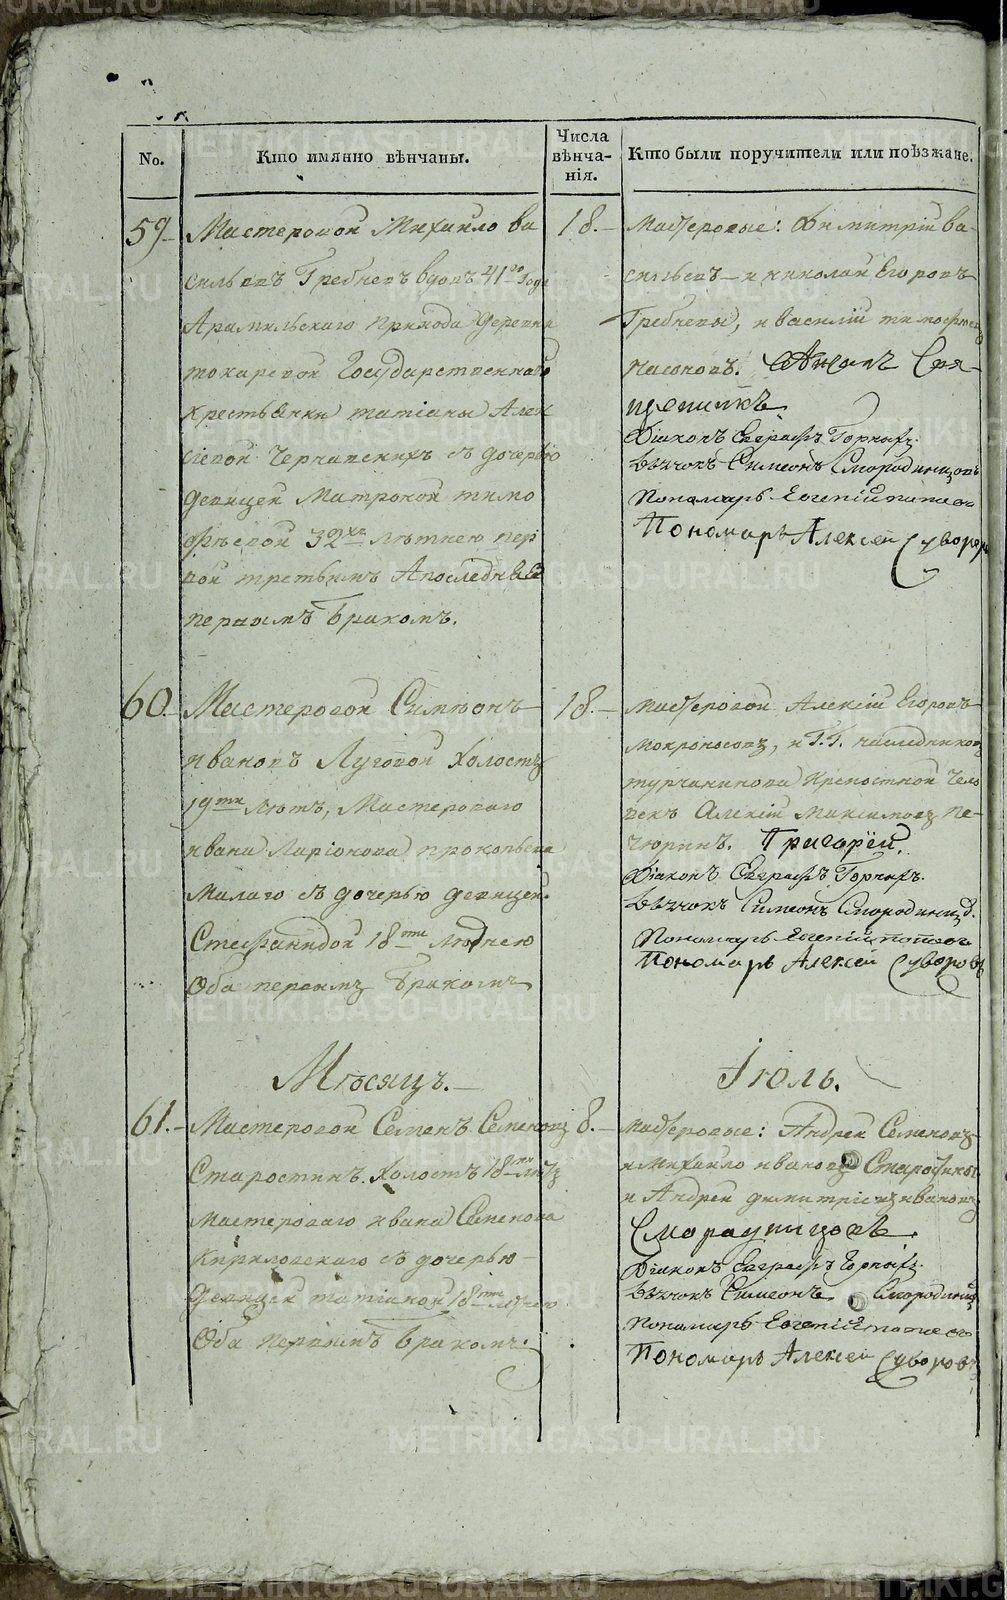 No.
Кто имянно вѣнчаны.
Числа
вѣнча-
нія.
Кто были поручители или поѣзжане.
59.
Мастеровой Михайло ва
сильевъ Гребневъ вдовъ 41го года
Арамильскаго прихода деревни
токаревой Государственнаго
крестьянки татіаны Алек
сіевой съ дочерью
девицей Матроной тимо
фѣевой 32хъ лѣтнею пер
вой третьимъ Апоследняя
первымъ бракомъ.
18.
Мастеровые: Димитрій ва-
сильевъ и николай Егоровъ
Гребневы, и василій тимофеевъ
Діаконъ Евграфъ
Дьячокъ Симеонъ Смородинцовъ
Пономарь Евгеній поповъ
Пономарь Алексей Суворовъ
60.
Мастеровой Симеонъ
ивановъ Луговой холостъ
19ти лѣтъ, Мастероваго
ивана Ларіонова прокопьева
Малаго съ дочерью девицей
Стефанидой 18ти лѣтнею
Оба первымъ бракомъ
18.
Мастеровой Алексій Егоровъ
Мокроносовъ, и Г.Г. наследниковъ
турчанинова крепостной чело
векъ Алексій Максимовъ Пе-
чюринъ. Григорей.
Діаконъ Евграфъ
Дьячокъ Симеонъ Смородинцов.
Пономарь Евгеній поповъ
Пономарь Алексей Суворовъ
Мѣсяцъ.
Іюль.
61.
Мастеровой Семенъ Семеновъ
Старостинъ холостъ 18ти лѣтъ
Мастероваго ивана Семенова
Кириловскаго съ дочерью
Девицей татіаной 18ти лѣтнею
Оба первымъ бракомъ.
8.
Мастеровые: Андрей Семеновъ
и Михайло ивановъ Старостины
и Андрей димитріевъ ивановъ
Діаконъ Евграфъ
Дьячокъ Симеонъ Смородинц
Пономарь Евгеній поповъ
Пономарь Алексей Суворовъ
METRIKI.GASO-URAL.RU